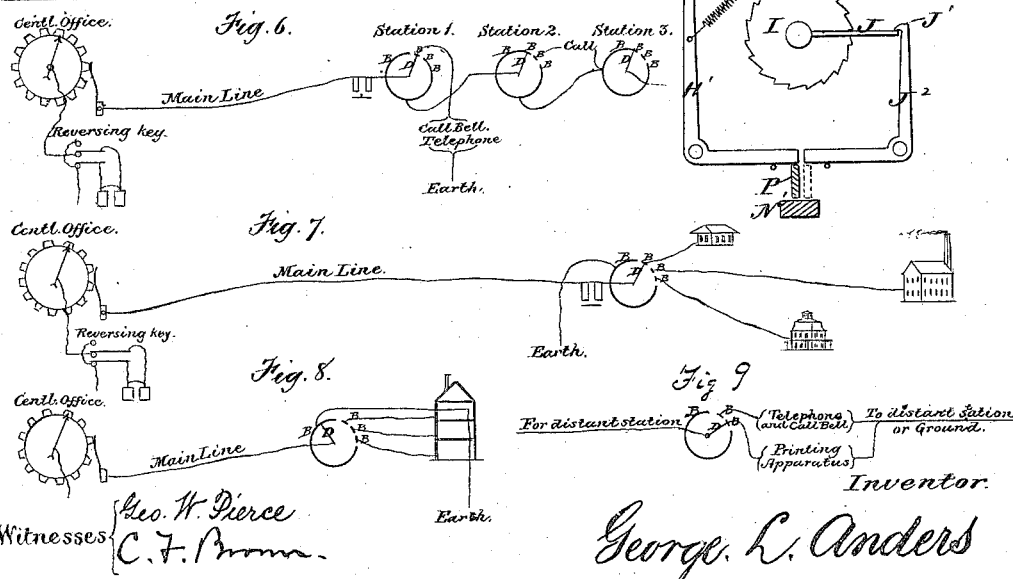 Centl. Office.
Fig. 6.
Station 1.
Station 2.
Station 3.
B
B
B
D
B
B
B
D
Call
B
B
B
D
Main Line
Reversing key.
Call Bell.
Telephone
Earth.
I
J
J'
H'
J 2
P
N'
Centl. Office.
Fig. 7.
Main Line.
B
B
B
B
D
Reversing key.
Earth.
Fig. 8.
Centl. Office.
B
B
B
D
Main Line
Earth.
Fig 9
For distant station
B
B
B
D
Telephone
and Call Bell
Printing
Apparatus
To distant sation
or Ground.
Inventor.
Witnesses
Geo. W. Pierce
C. F. Brown.
George. L. Anders